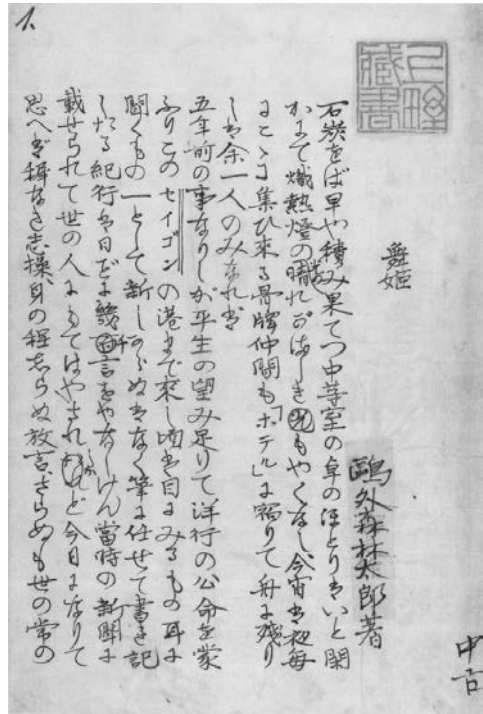 1.
藏書
中古
舞姫
鷗外森林太郎著
石炭をば早や積み果てつ中等室の卓のほとりはいと閑
かにて熾熱燈の晴れがましき光もやくなし、今宵は夜毎
にこゝに集ひ来る骨牌仲間も「ホテル」に宿りて舟に残り
しは余一人のみなれば
五年前の事なりしが平生の望み足りて洋行の公命を蒙
ふりこのセイゴンの港まで來し頃は目にみるもの耳に
聞くもの一として新しからぬはなく筆に任せて書き記
したる紀行は日ごとに幾千言をやなしけん當時の新聞に
載せられて世の人にもてはやされしかど今日になりて
思へば穉なき志操、身の程志らぬ放言、さらぬも世の常の